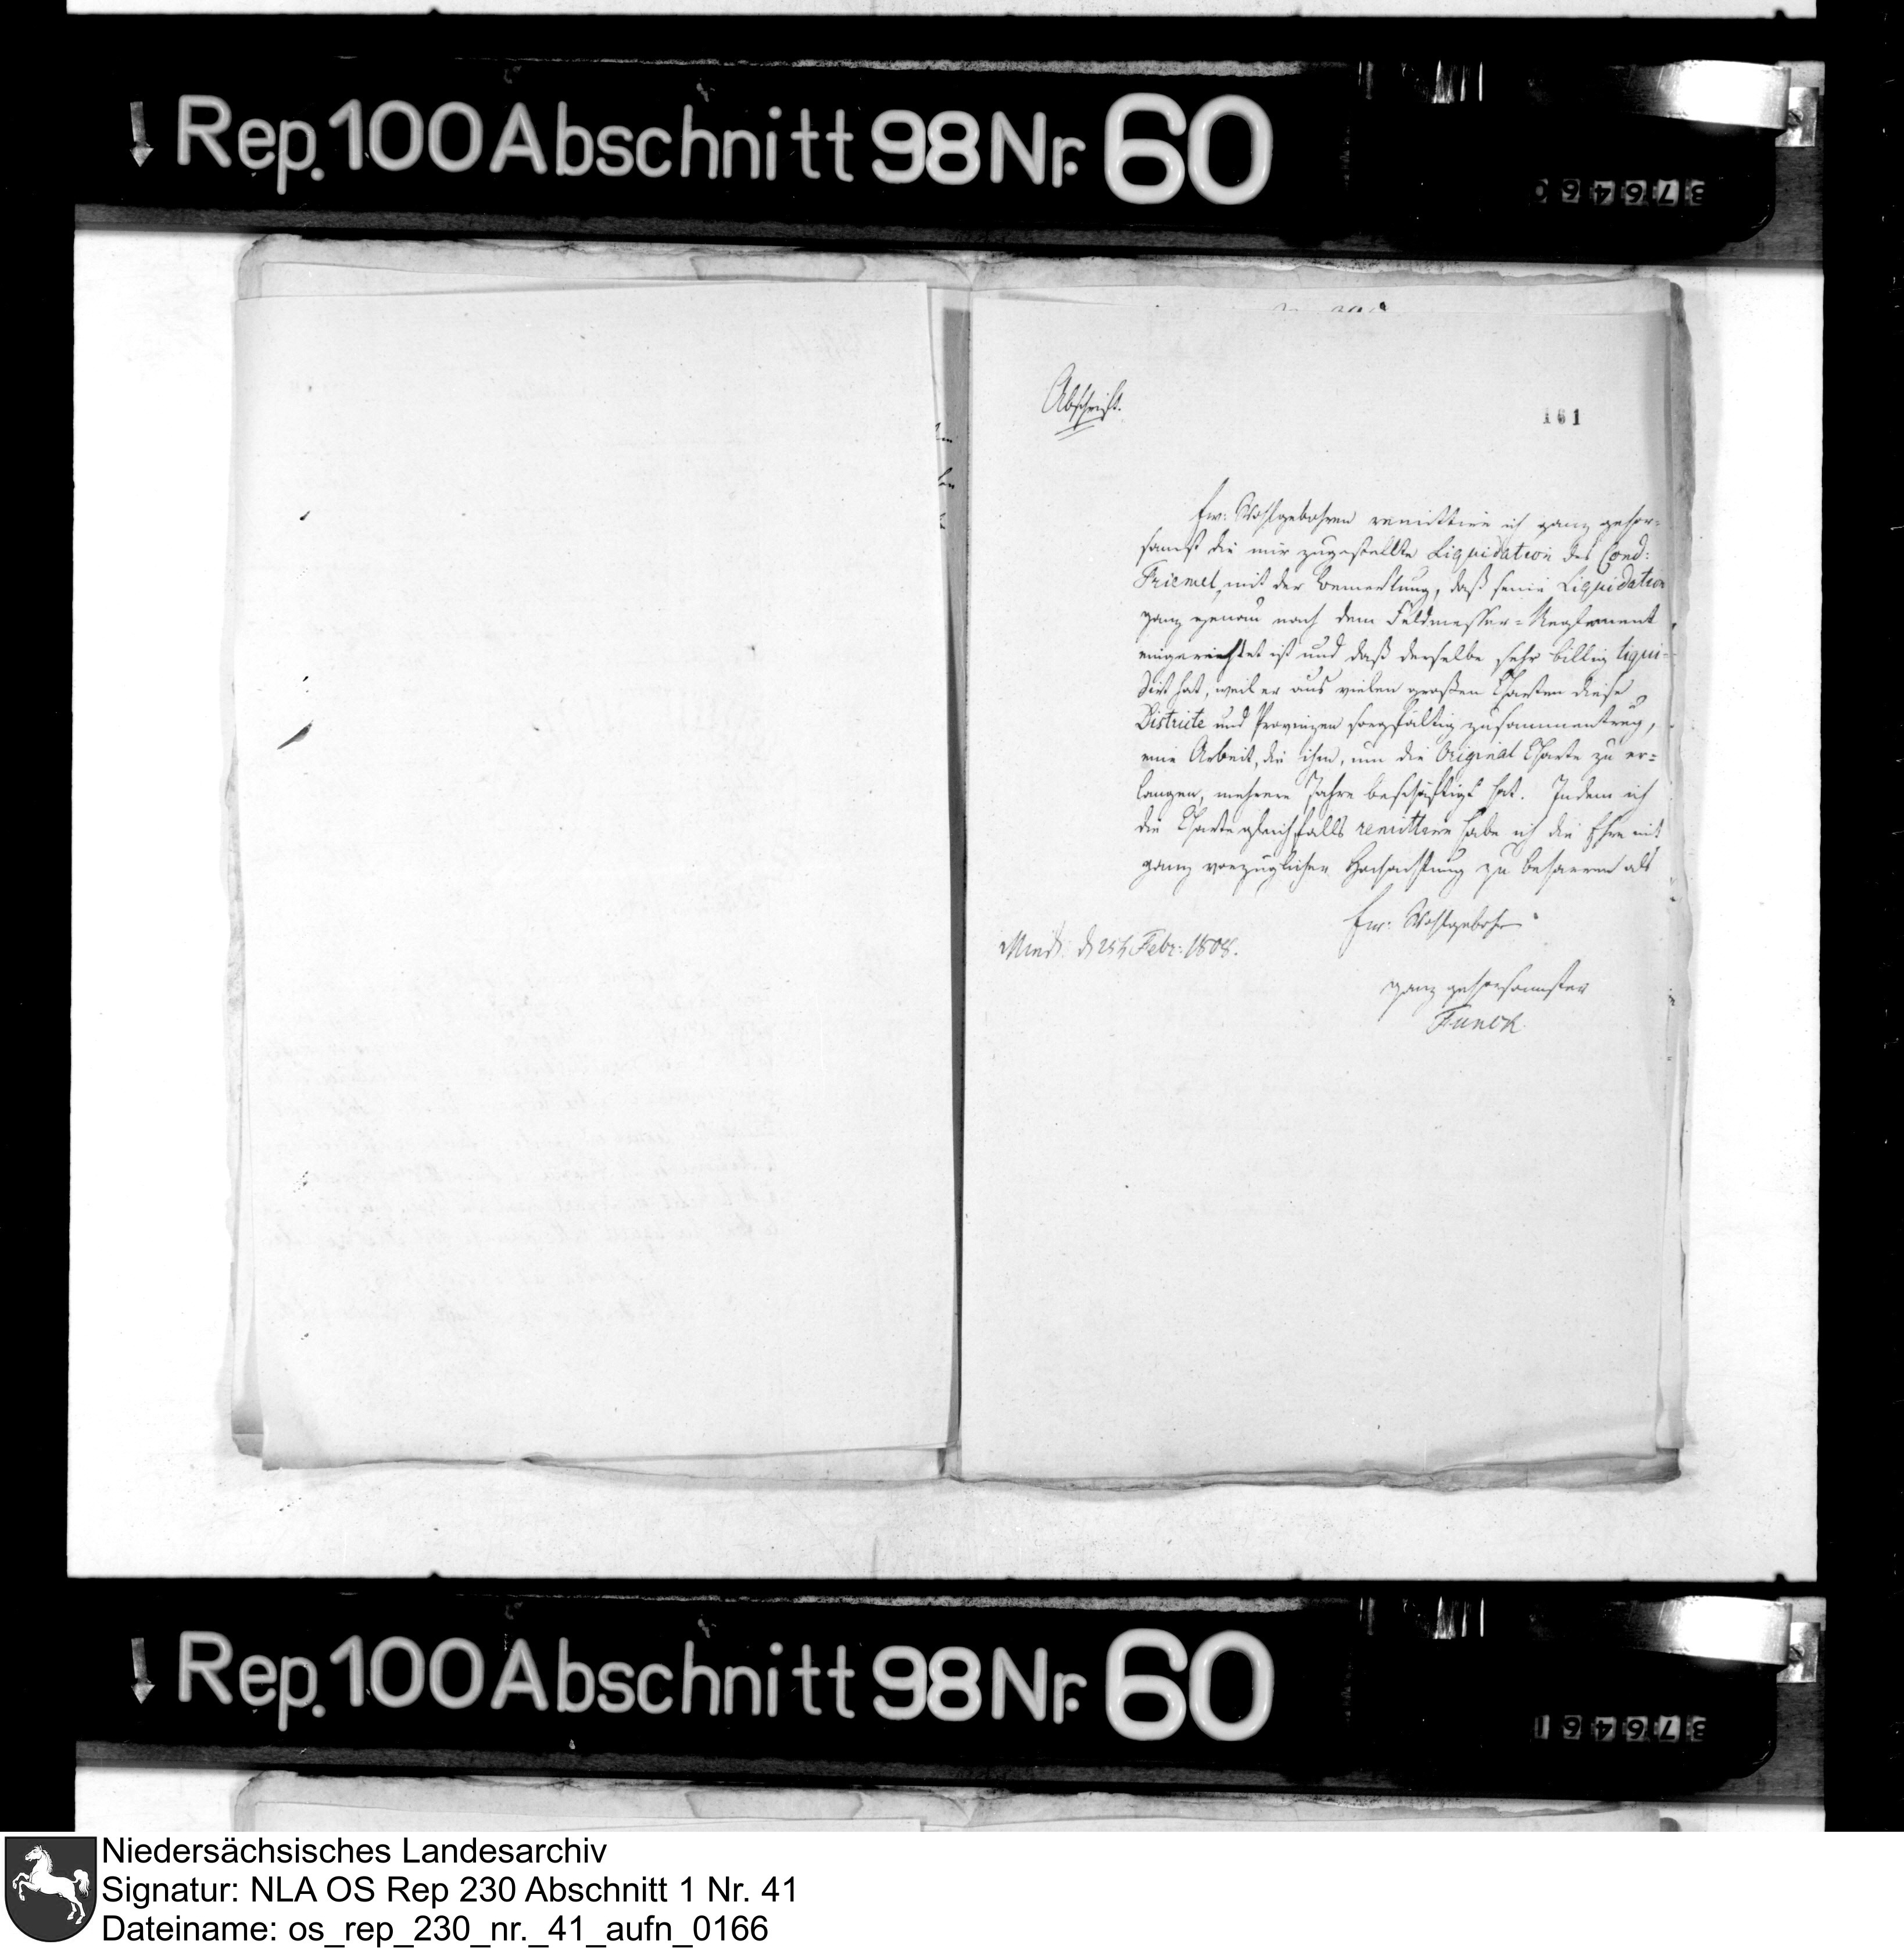 Rep. 100 Abschnitt 98 Nr. 60
376460
Abschrift.
161
Ew: Wohlgebohren remittire ich ganz gehor-
samst die mir zugestellte Liquidation des Cond:
Friemel, mit der Bemerkung, daß seine Liquidation
ganz genau nach dem Feldmesser-Reglement
eingerichtet ist und daß derselbe sehr billig liqui-
dirt hat, weil er aus vielen großen Charten diese
Districte und Provinzen sorgfältig zusammentrug,
eine Arbeit, die ihm, um die Original Charte zu er-
langen, mehrere Jahre beschäftigt hat. Indem ich
die Charte gleichfalls remittire habe ich die Ehre mit
ganz vorzüglicher Hochachtung zu beharren als
Ew: Wohlgebohr
Mind: d Febr: 1808.
ganz gehorsamster
Funck
Rep. 100 Abschnitt 98 Nr. 60
376461
Niedersächsisches Landesarchiv
Signatur: NLA OS Rep 230 Abschnitt 1 Nr. 41
Dateiname: os_rep_230_nr._41_aufn_0166